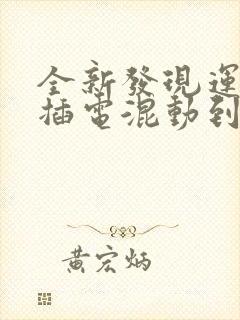 全新發現運
插電混動到
黃宏炳